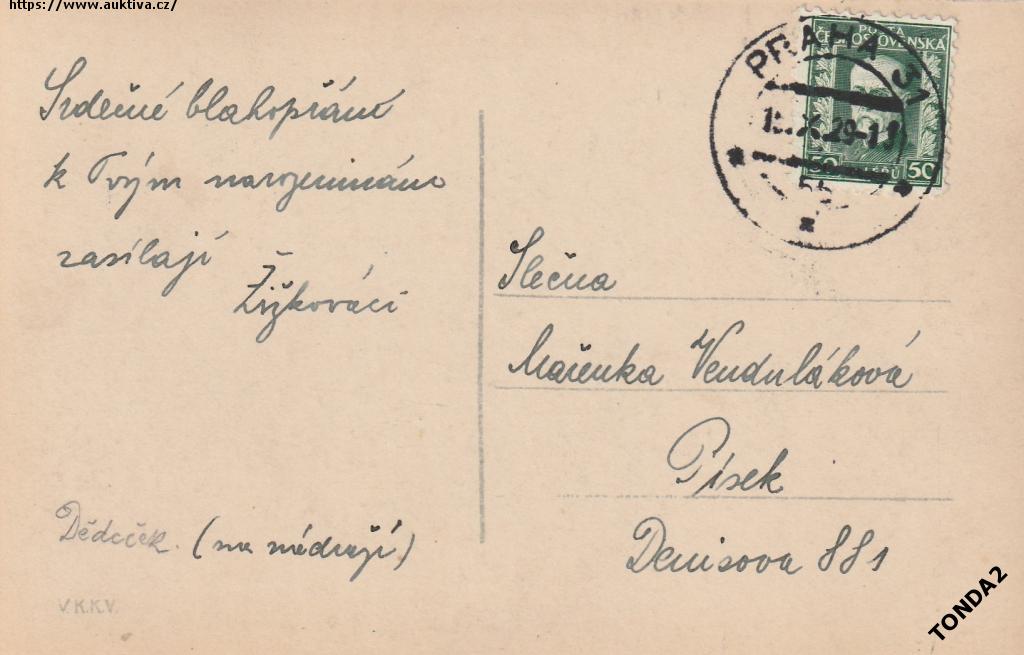 https://www.auktiva.cz/
Srdečné blahopřání
k Tvým narozeninám
zasílají
Žižkováci
Dědeček. (na nádraží)
V.K.K.V.
POŠTA
ČESKOSLOVENSKÁ
50 50
PRAHA 31
X. 29-1
Slečna
Mařenka Venduláková
Písek
Denisova 881
TONDA2